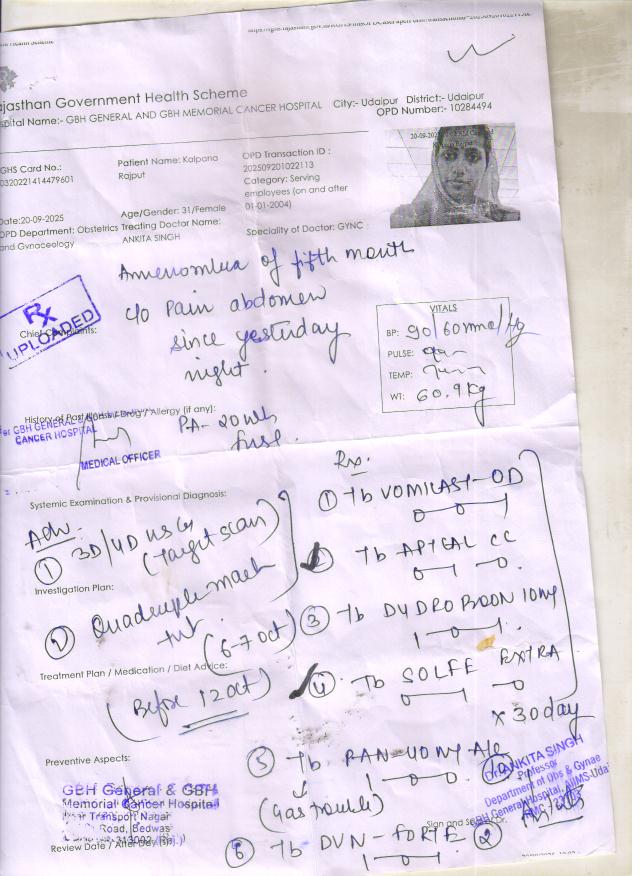 Rajasthan Government Health Scheme
Hospital Name:- GBH GENERAL AND GBH MEMORIAL CANCER HOSPITAL City:- Udaipur District:- Udaipur
OPD Number:- 10284494
GHS Card No.:
0320221414479601
Patient Name: Kalpana
Rajput
OPD Transaction ID :
202509201022113
Category: Serving
employees (on and after
01-01-2004)
Date:20-09-2025
OPD Department: Obstetrics
and Gynaceology
Age/Gender: 31/Female
Treating Doctor Name:
ANKITA SINGH
Speciality of Doctor: GYNC
of fifth month
c/o Pain abdomen
since yesterday
night.
Rx
UPLOADED
Chief Complaints:
VITALS
BP: 90/60mm/Hg
PULSE:
TEMP:
WT: 60.9Kg
History of Past Illness/ Drug / Allergy (if any):
GBH GENERAL
CANCER HOSPITAL
MEDICAL OFFICER
PA-20wk
Systemic Examination & Provisional Diagnosis:
Adv.
① 3D/4D USG
(Target scan)
Investigation Plan:
② Quadruple
(6-7 oct)
Treatment Plan / Medication / Diet Advice:
(Before 12 oct)
Rx.
① Tb VOMILAST-OD
0 — 0 — 1
Tb CC
0 — 1 — 0.
③ Tb 10mg
1 — 0 — 1.
④ Tb SOLFE EXTRA
0 — 1 — 0
x 30day
⑤ Tb RAN-40mg
1 — 0 — 0.
(Gas trouble)
⑥ Tb DVN-FORTE
1 — 0 — 1
Preventive Aspects:
GBH General & GBH
Memorial Cancer Hospital
Transport Nagar
Road, Bedwas
Review Date / After Day (s):
Dr ANKITA SINGH
Professor
Department of Obs & Gynae
GBH General Hospital,
Sign and
②